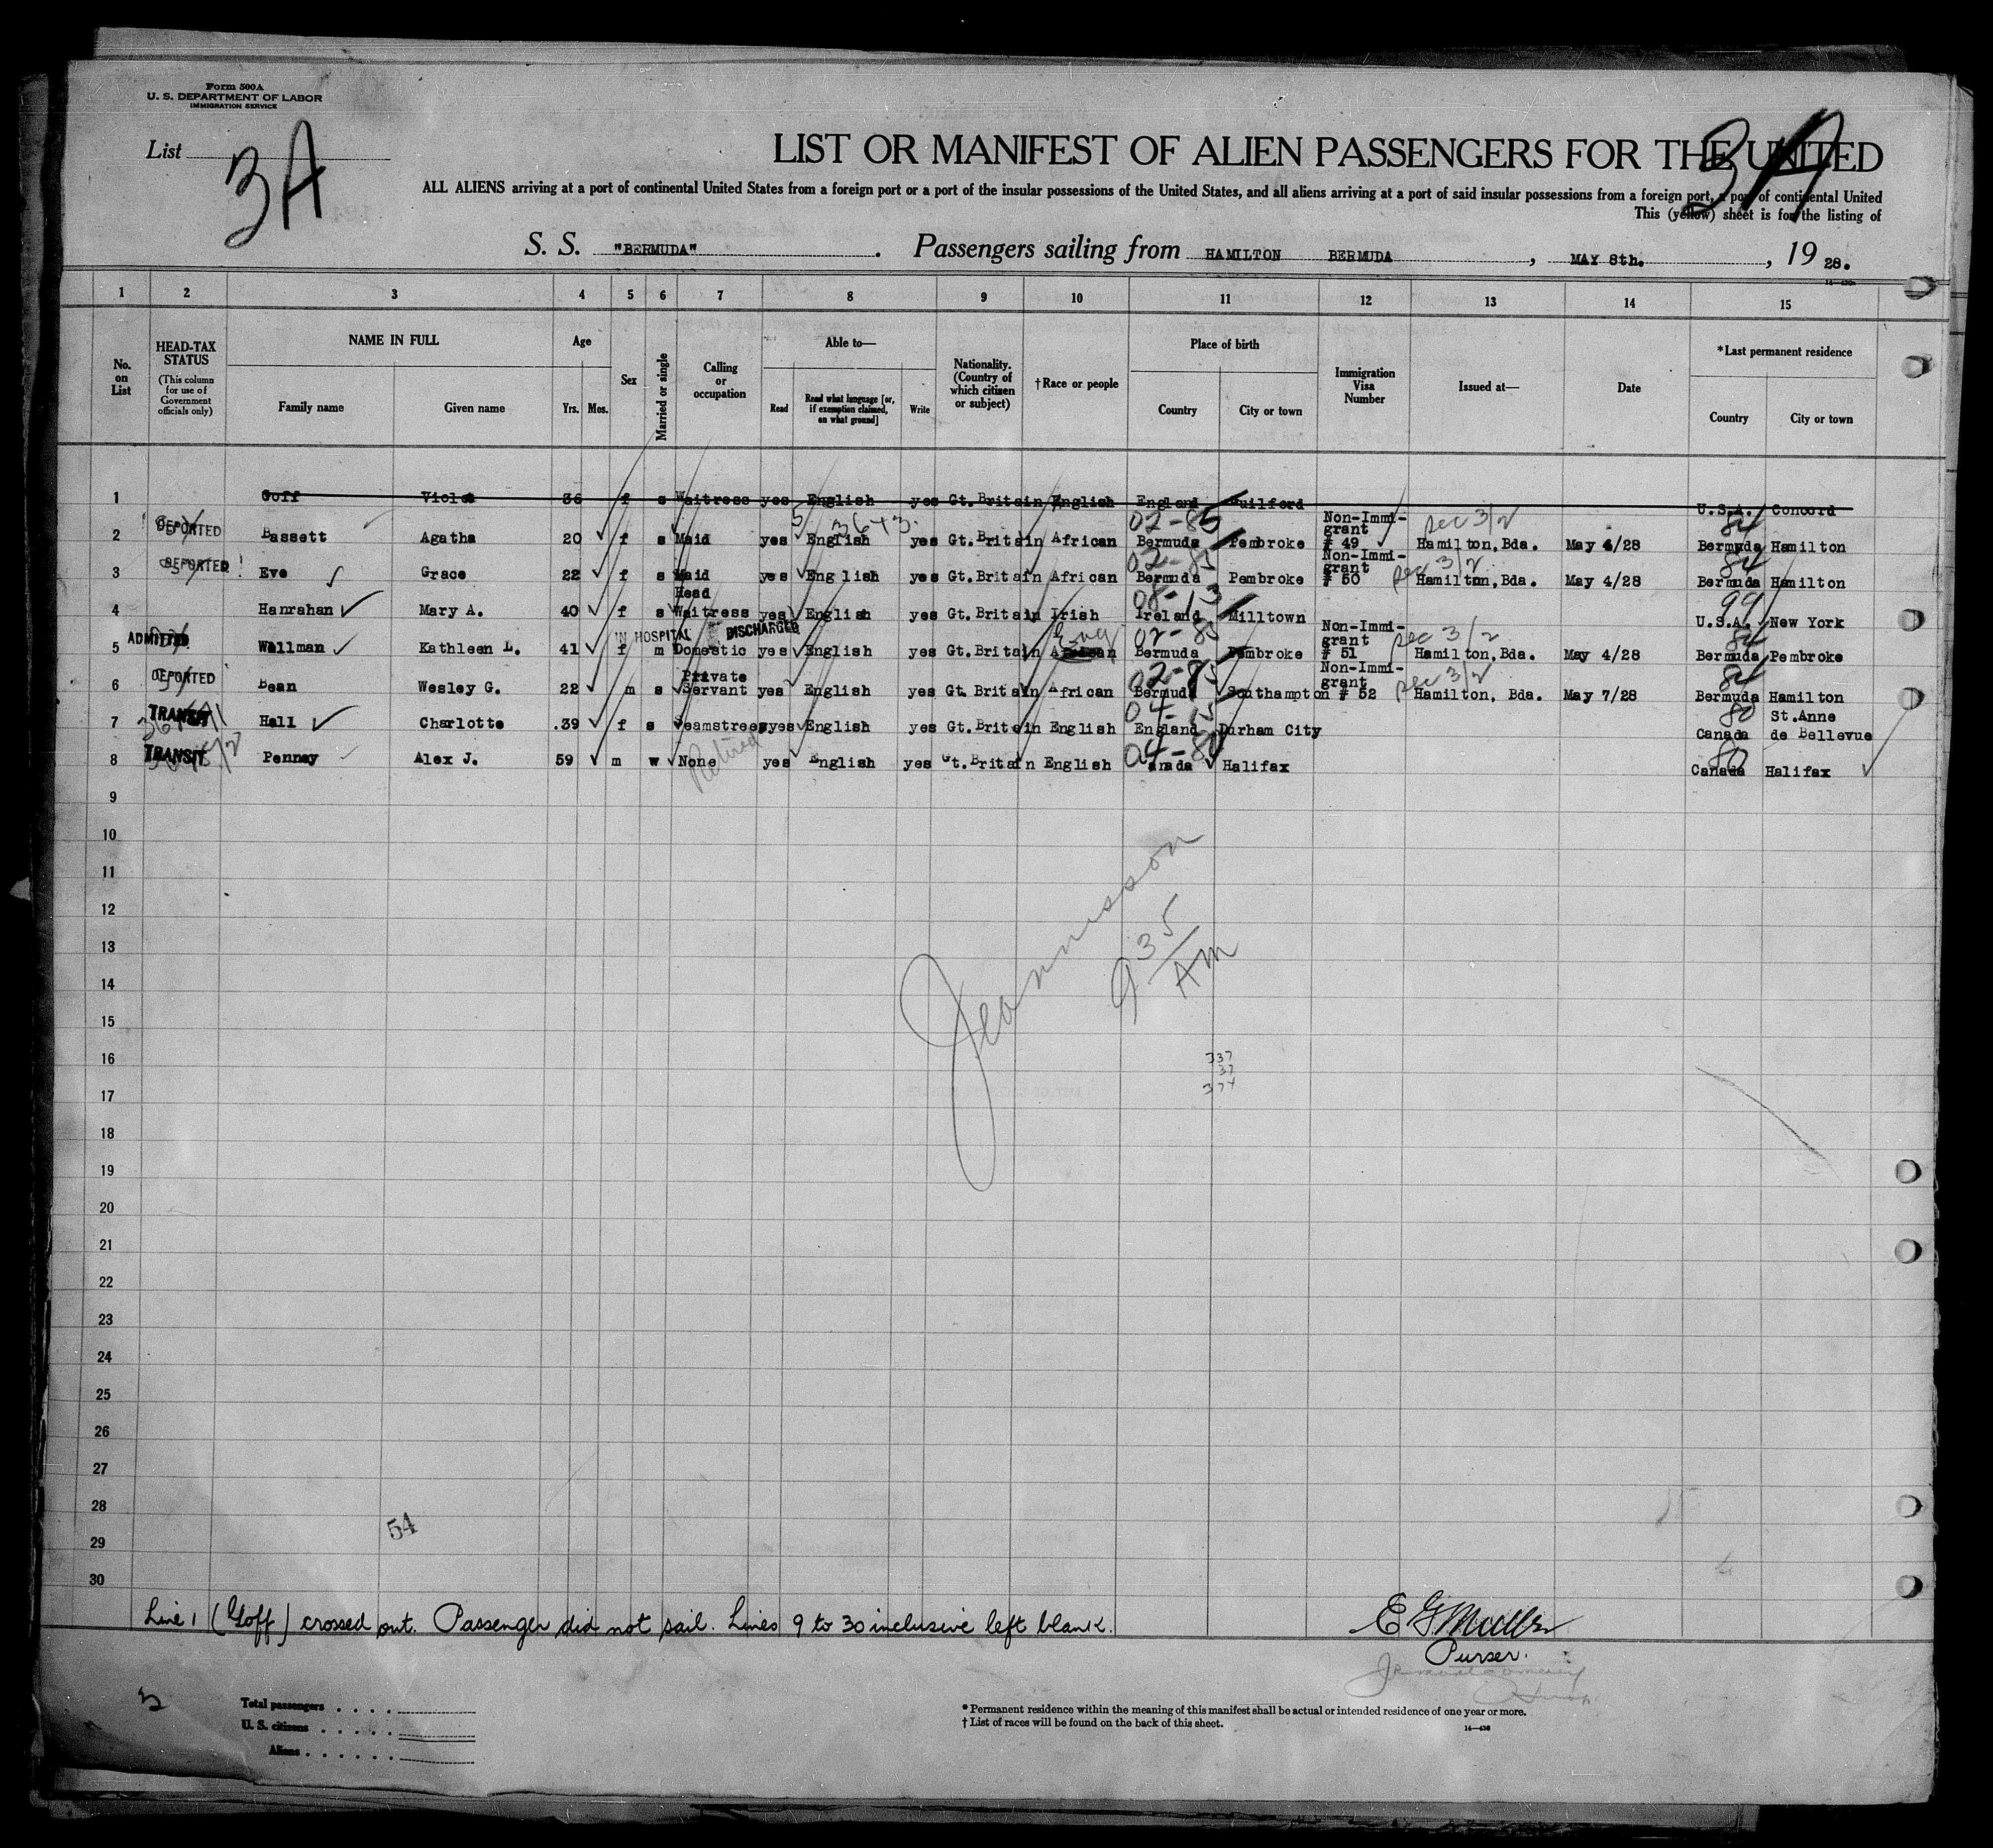 Form 500A
U. S. DEPARTMENT OF LABOR
IMMIGRATION SERVICE
List 3A
3A
LIST OR MANIFEST OF ALIEN PASSENGERS FOR THE UNITED
ALL ALIENS arriving at a port of continental United States from a foreign port or a port of the insular possessions of the United States, and all aliens arriving at a port of said insular possessions from a foreign port, a port of continental United
This (yellow) sheet is for the listing of
S. S. "BERMUDA". Passengers sailing from HAMILTON BERMUDA, MAY 8th., 19 28.
1 2 3 4 5 6 7 8 9 10 11 12 13 14 15
No. on List
HEAD-TAX STATUS
(This column for use of Government officials only)
NAME IN FULL
Family name Given name
Age
Yrs. Mos.
Sex
Married or single
Calling or occupation
Able to—
Read
Read what language [or, if exemption claimed, on what ground]
Write
Nationality. (Country of which citizen or subject)
†Race or people
Place of birth
Country City or town
Immigration Visa Number
Issued at—
Date
*Last permanent residence
Country City or town
1 Goff Violet 36 f s Waitress yes English yes Gt.Britain English England Guilford U.S.A. Concord
2 DEPORTED Bassett Agatha 20 f s Maid yes English yes Gt.Britain African 02-85 Bermuda Pembroke Non-Immigrant # 49 Sec 3/2 Hamilton,Bda. May 4/28 84 Bermuda Hamilton
3 DEPORTED Eve Grace 22 f s Maid yes English yes Gt.Britain African 02-85 Bermuda Pembroke Non-Immigrant # 50 Sec 3/2 Hamilton,Bda. May 4/28 84 Bermuda Hamilton
4 Hanrahan Mary A. 40 f s Head Waitress yes English yes Gt.Britain Irish 08-13 Ireland Milltown 99 U.S.A. New York
5 ADMITTED Wellman Kathleen L. 41 f m IN HOSPITAL DISCHARGED Domestic yes English yes Gt.Britain African 02-85 Bermuda Pembroke Non-Immigrant # 51 Sec 3/2 Hamilton,Bda. May 4/28 84 Bermuda Pembroke
6 DEPORTED Bean Wesley G. 22 m s Private Servant yes English yes Gt.Britain African 02-85 Bermuda Southampton Non-Immigrant # 52 Sec 3/2 Hamilton, Bda. May 7/28 84 Bermuda Hamilton
7 TRANSIT Hall Charlotte .39 f s Seamstress yes English yes Gt.Britain English 04-15 England Durham City 80 Canada St.Anne de Bellevue
8 TRANSIT Penney Alex J. 59 m w None Retired yes English yes Gt.Britain English 04-80 Canada Halifax 80 Canada Halifax
9
10
11
12
13
14
15
16
17
18
19
20
21
22
23
24
25
26
27
28
29
30
9 35 AM
337
37
374
54
Line 1 (Goff) crossed out. Passenger did not sail. Lines 9 to 30 inclusive left blank.
Purser.
Total passengers
U. S. citizens
Aliens
* Permanent residence within the meaning of this manifest shall be actual or intended residence of one year or more.
† List of races will be found on the back of this sheet.